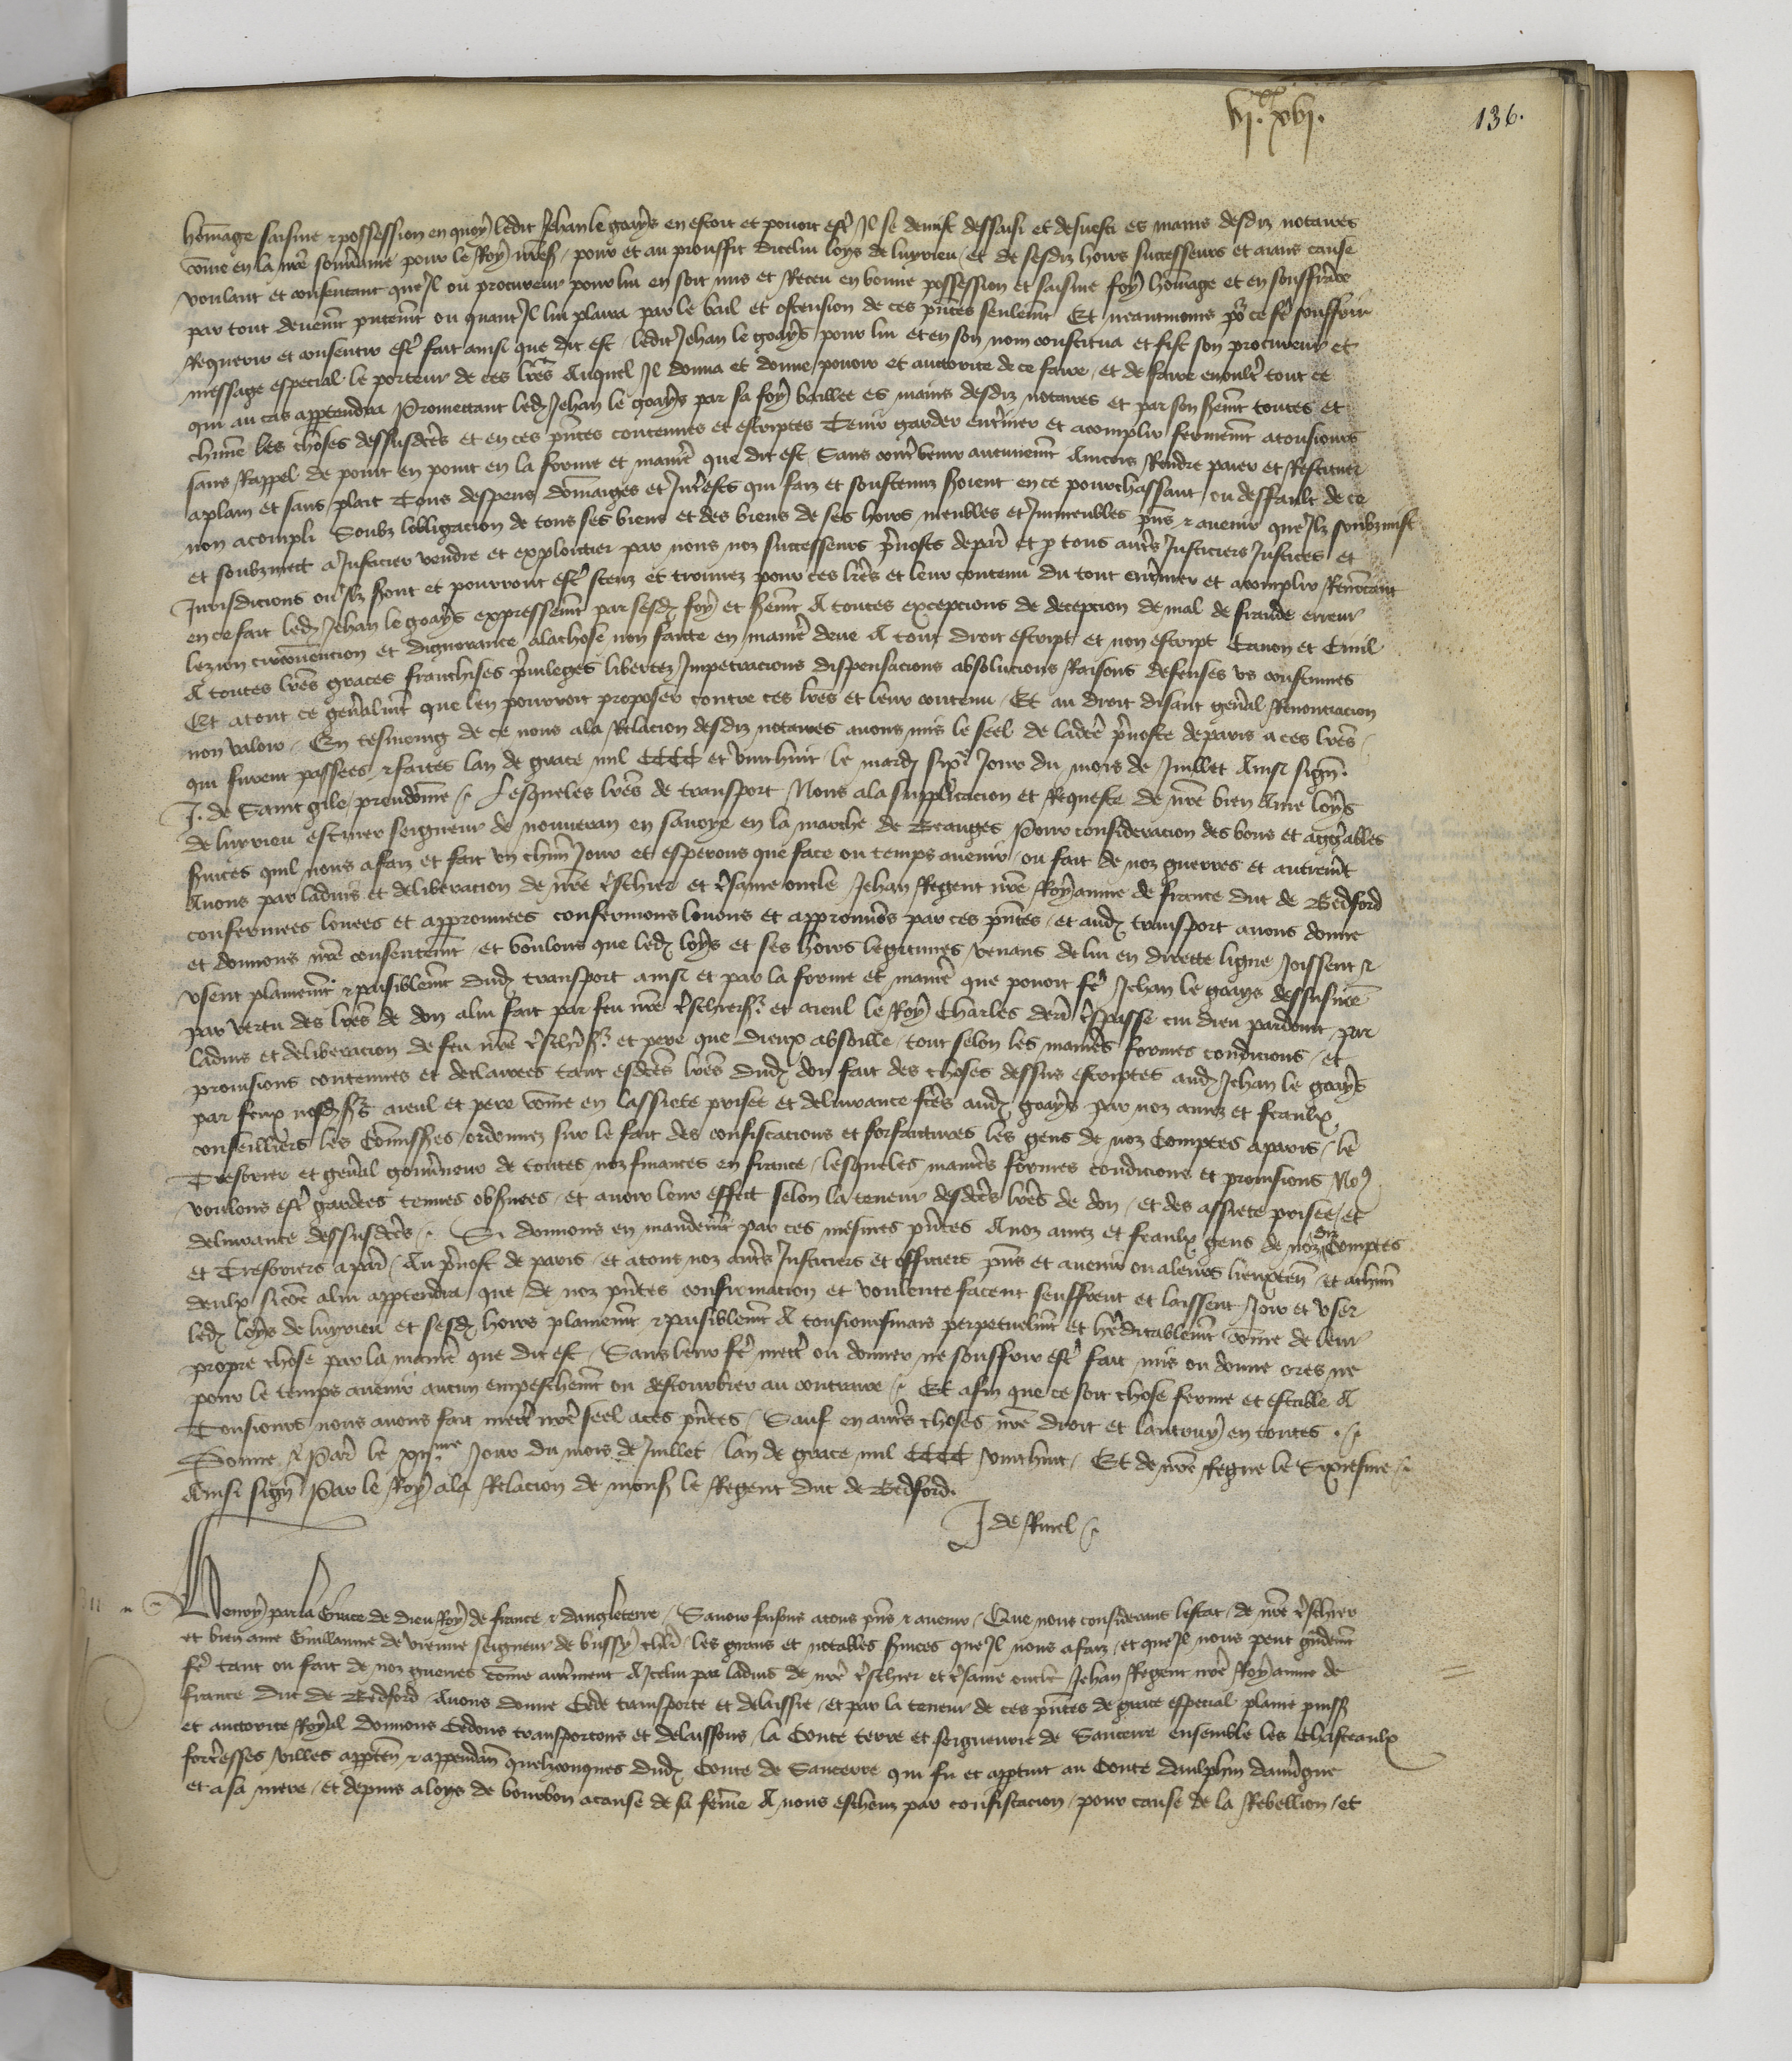 VIxx XVI.
136.
hōmage saisine & possession en quoy ledit Jehan le goays en estoit et povoit est' Il se demist dessaisi et desvesti es mains desdiz notaires
cōme en la nrē souv'aine pour le Roy nrēs' pour et au prouffit dicelui loys de luyrieu et de sesdiz hoirs successeurs et aians cause
voulant et consentant que Il ou procureur pour lui en soit mis et Receu en bonne possession et saisine foy hōmage et en souffrāce
par tout devemt pntemt ou quant Il lui plaira par le bail et ostension de ces pntes seulemt Et neantmoins po' ce fe' souffrir
Requerir et consentir est' fait ainsi que dit est ledit Jehan le goays pour lui et en son nom constitua et fist son procureur et
message especial le porteur de ces lres Auquel Il donna et donne povoir et auctorite de ce faire et de faire en oult' tout ce
qui au cas appartendra Promettant led Jehan le goays par sa foy baillee es mains desdiz notaires et par son sermt toutes et
chune les choses dessusdces et en ces pntes contenues et escriptes Tenir garder ent'iner et acomplir fermemt a tousiours
sans Rappel de point en point en la forme et manie' que dit est Sans contr' venir aucunemt Aincois Rendre paier et Restituer
a plain et sans plait Tous despens dōmaiges et Int'ests qui faiz et soustenuz seroient en ce pourchassant ou deffault de ce
non acompli Soubz lobligacion de tous ses biens et des biens de ses hoirs meubles et Inmeubles pns & avenir que Ilz soubzmist
et soubzmect a Justicier vendre et exploictier par nous noz successeurs p'vosts de par' et p tous aut's Justiciers Justices et
Jurisdicions ou Ilz sont et pourront est' sceuz et trouvez pour ces lres et leur contenu du tout ent'iner et acomplir Renōcant
en ce fait led Jehan le goays expressemt par sesd foy et sermt A toutes excepcions de decepcion de mal de fraude erreur
lezion circōvencion et dignorance a la chose non faicte en manie' deue A tout droit escript et non escript Canon et Civil
A toutes lres graces franchises p'vileges libertez Impetracions dispensacions absolucions Raisons defenses us coustumes
Et a tout ce gen'alemt que len pourroit proposer contre ces lres et leur contenu Et au droit disant gen'al Renonciacion
non valoir En tesmoing de ce nous a la Relacion desdiz notaires avons mis le seel de ladce p'voste de paris a ces lres
qui furent passees & faictes lan de grace mil CCCC et vint huit le mardj sixe Jour du mois de Juillet Ainsi signe.
J. de Saint gile preudōme Lesqueles lres de transport Nous a la supplicacion et Requeste de nre bien Ame loys
de luyrieu escuier seigneur de nouveran en savoye en la marche de Beauges Pour consideracion des bons et aggreables
s'vices quil nous a faiz et fait un chun Jour et esperons que face ou temps avenir ou fait de noz guerres et autremt
Avons par ladvis et deliberacion de nre t'schier et t'same oncle Jehan Regent nre Royaume de france duc de Bedford
confermees louees et approuvees confermons louons et approuvons par ces pntes et aud transport avons donne
et donnons nre consentemt et voulons que led loys et ses hoirs legitimes venans de lui en directe ligne Joissent &
usent plainemt & paisiblemt dud transport ainsi et par la forme et manie' que povoit fe' Jehan le goays dessusnōe
par vertu des lres de don a lui fait par feu nre t'schier sr et aieul le Roy Charles derr' t'spasse cui dieu pardoint par
ladvis et deliberacion de feu nre t'schr sr et pere que Dieux absoille tout selon les manie's formes condicions et
provisions contenues et declairees tant esdces lres dud don fait des choses dessus escriptes aud Jehan le goays
par feux nosd srs aieul et pere cōme en lassiete prisee et delivrance fces aud goays par noz amez et feaulx
conseilliers les Cōmissres ordonnez sur le fait des confiscacions et forfaictures les gens de noz Comptes a paris le
Tresorier et gen'al gouv'neur de toutes noz finances en france lesqueles manie's formes condicions et provisions No9
voulons est' gardees tenues obs'vees et avoir leur effect selon la teneur desdces lres de don et des assiete prisee et
delivrance dessusdces Si donnons en mandemt par ces mesmes pntes A noz amez et feaulx gens de nozdiz Comptes
et Tresoriers a par' Au p'vost de paris et a tout noz aut's Justiciers et officiers pns et avenir ou a leurs lieuxten' et a chun
deulx sicōe a lui appartendra que de noz pntes confirmacion et voulente facent seuffrent et laissent Joir et user
led loys de luyrieu et sesd hoirs plainemt & paisiblemt A tousiousmais perpetuelmt et he'ditablemt cōme de leur
propre chose par la manie' que dit est Sans leur fe' mett' ou donner ne souffrir est' fait mis ou donne ores ne
pour le temps avenir aucun empeschemt ou destourbier au contraire Et afin que ce soit chose ferme et estable A
Tousiours nous avons fait mett' nre seel a ces pntes Sauf en aut's choses nre droit et lautruy en toutes
Donne A Par' le xijme Jour du mois de Juillet lan de grace mil CCCC vint huit Et de nre Regne le Sixiesme
Ainsi signe Par le Roy a la Relacion de mons' le Regent duc de Bedford.
J de Rinel
Henry par la Grace de dieu Roy de france & dangleterre Savoir faisons a tous pns & avenir Que nous considerans lestat de nre t'schier
et bien ame Guillaume de vienne seigneur de bussy chlr les grans et notables s'vices que Il nous a faiz et que Il nous peut g'ndemt
fe' tant ou fait de noz guerres cōme aut'ement A Icelui par ladvis de nre t'schier et t'same oncle Jehan Regent nre Royaume de
france duc de Bedford Avons donne Cede transporte et delaissie et par la teneur de ces pntes de grace especial plaine puiss
et auctorite Royal donnons Cedons transportons et delaissons la Conte terre et seigneurie de Sancerre ensemble les Chasteaulx
fort'esses villes apparten' & appendan' quelzconques dud Conte de Sancerre qui fu et appartint au Conte daulphin dauv'gne
et a sa mere et depuis a loys de bourbon a cause de sa fēme A nous escheuz par confiscacion pour cause de la Rebellion et